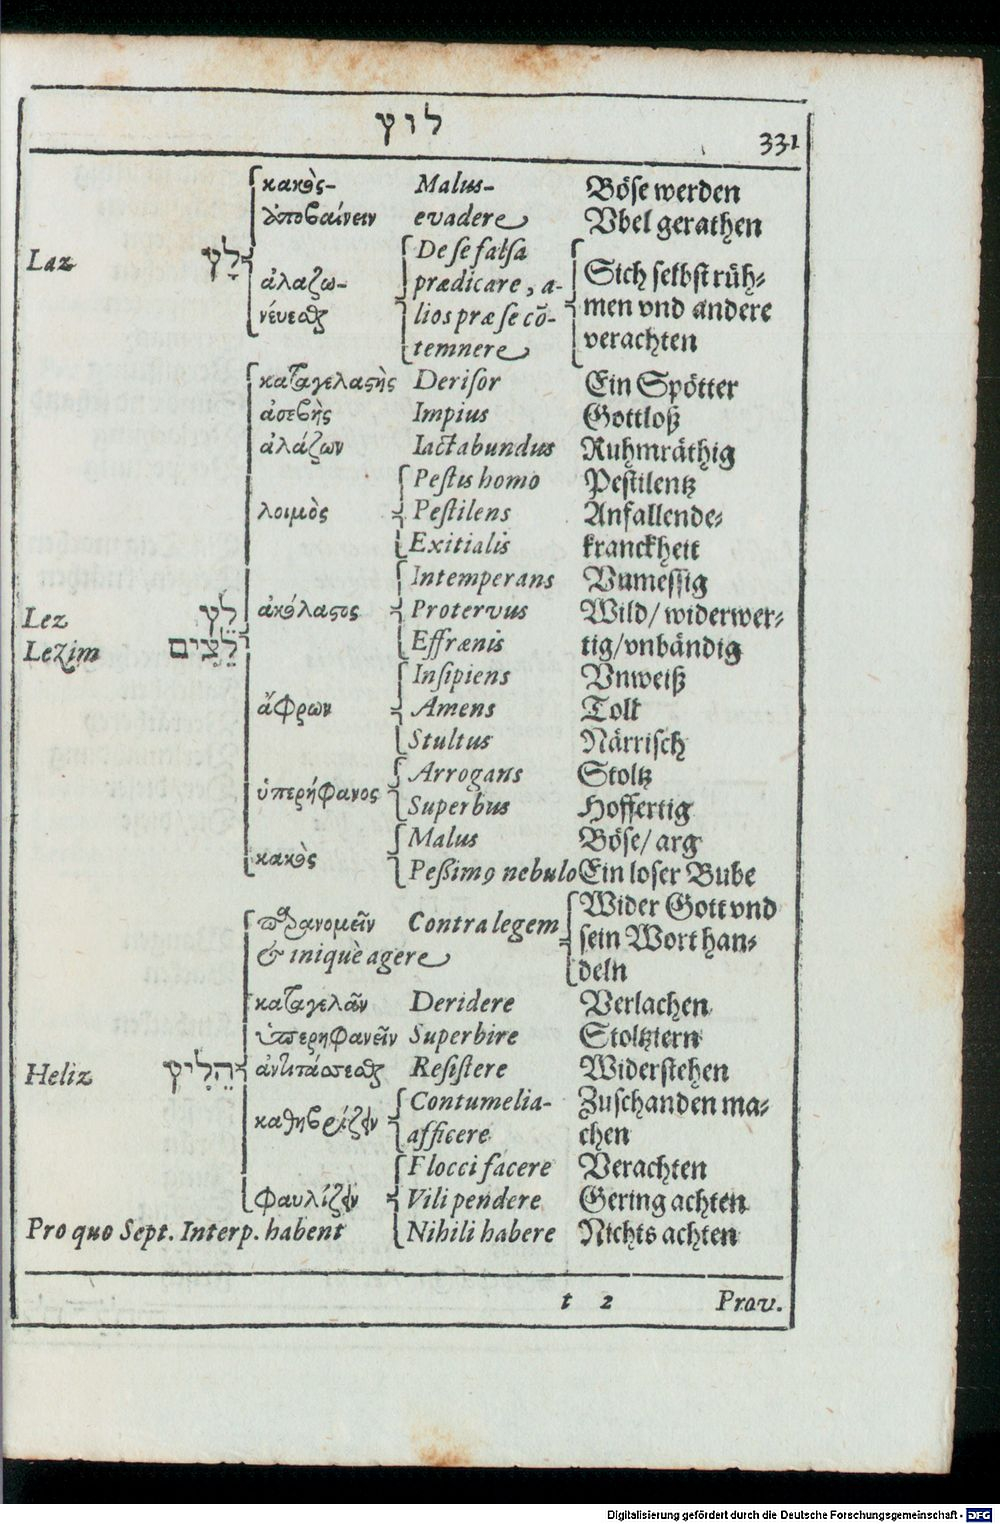 לוץ
331
κακὸς- Malus- Böse werden
ἀποβαίνειν evadere Vbel gerathen
Laz לָץ
De se falsa
ἀλαζω- prædicare, a- Sich selbst rüh-
νέυεσθαι lios præ se cō- men vnd andere
temnere verachten
καταγελαςὴς Derisor Ein Spötter
ἀσεβὴς Impius Gottloß
ἀλάζων Iactabundus Ruhmräthig
Pestis homo Pestilentz
λοιμὸς Pestilens Anfallende-
Exitialis kranckheit
Intemperans Vnmessig
Lez לֵץ ἀκόλαςος Protervus Wild/ widerwer-
Lezim לֵצִים Effrænis tig/vnbändig
Insipiens Vnweiß
ἄφρων Amens Toll
Stultus Närrisch
Arrogans Stoltz
ὑπερήφανος Superbus Hoffertig
Malus Böse/ arg
κακὸς Peßimꝰ nebulo Ein loser Bube
Wider Gott vnd
παρανομεῖν Contra legem sein Wort han-
& iniquè agere deln
καταγελᾶν Deridere Verlachen
ὑπερηφανεῖν Superbire Stoltziern
Heliz הֵלִיץ ἀντιτάσσεσθαι Resistere Widerstehen
Contumelia- Zuschanden ma-
καθυβρίζειν afficere chen
Flocci facere Verachten
φαυλίζειν Vili pendere Gering achten
Pro quo Sept. Interp. habent Nihili habere Nichts achten
t 2 Prov.
Digitalisierung gefördert durch die Deutsche Forschungsgemeinschaft - DFG